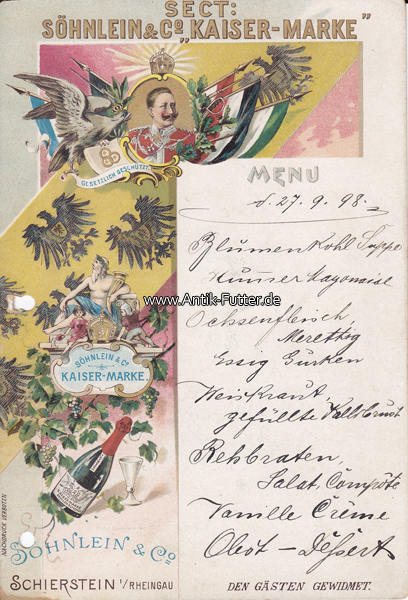 SECT:
SÖHNLEIN & Cº „KAISER-MARKE"
GESETZLICH GESCHÜTZT.
MENU
d. 27. 9. 98.
Blumenkohl Suppe
Hummer Mayonaise
Ochsenfleisch
Merettig
Essig Gurken
www.Antik-Futter.de
Weiskraut,
gefüllte Kalbsbrust
SÖHNLEIN & Cº
KAISER-MARKE.
Rehbraten,
Salat, Compôte
Vanille Crème
Obst – Dessert
NACHDRUCK VERBOTEN
SÖHNLEIN & Cº
SCHIERSTEIN I/RHEINGAU
DEN GÄSTEN GEWIDMET.